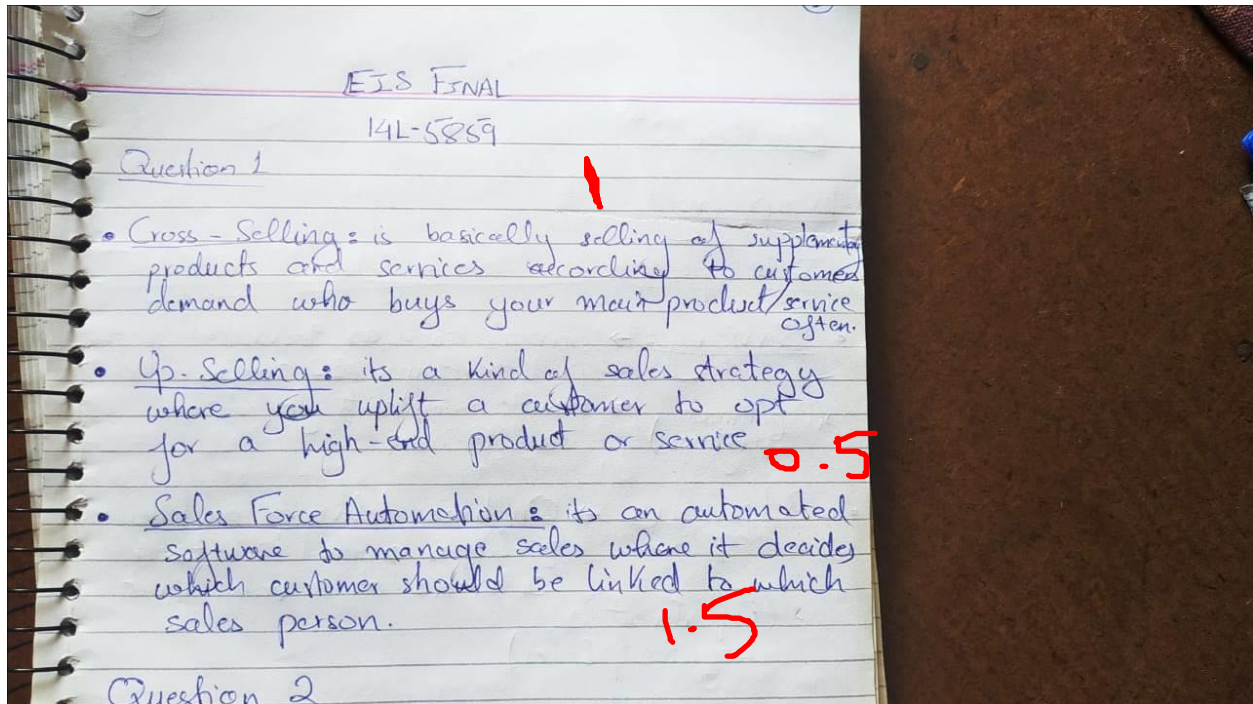 EIS FINAL
14L-5859
Question 1
1
• Cross-Selling: is basically selling of supplementary
products and services according to customer
demand who buys your main product/service
often.
• Up-Selling: its a kind of sales strategy
where you uplift a customer to opt
for a high-end product or service
0.5
• Sales Force Automation: its an automated
software to manage sales where it decides
which customer should be linked to which
sales person.
1.5
Question 2